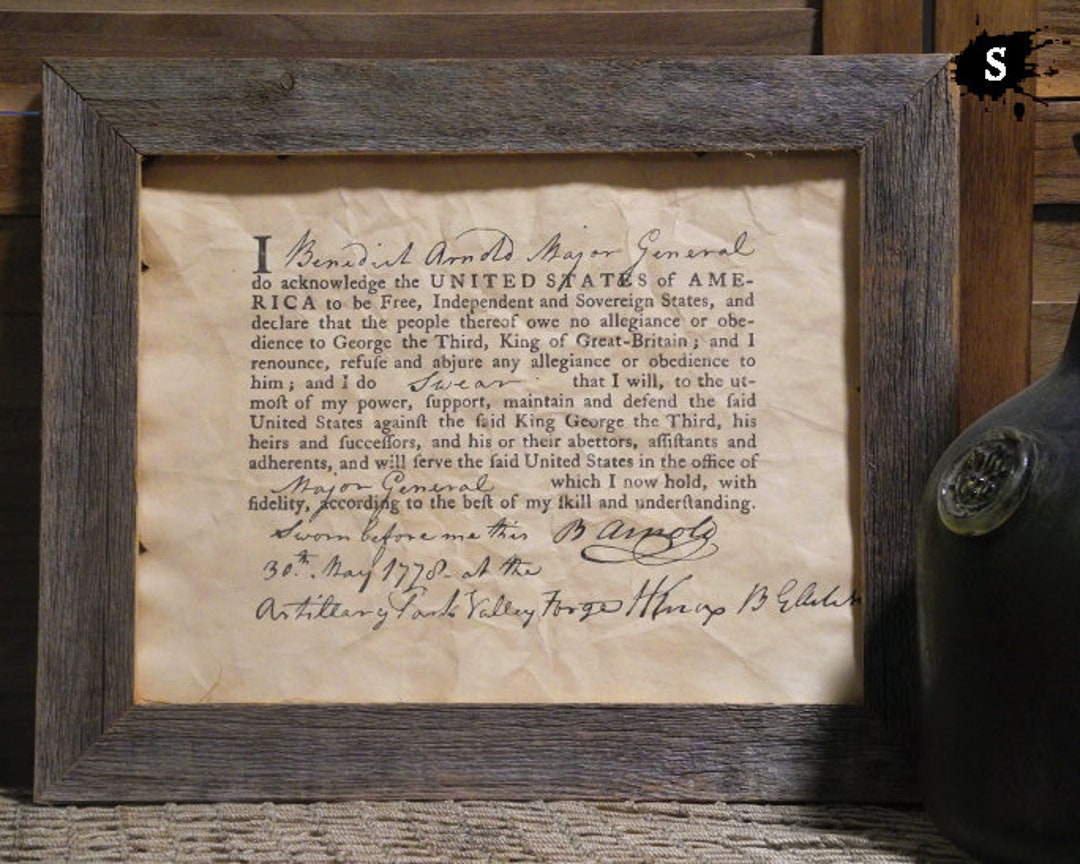 S
I Benedict Arnold Major General
do acknowledge the UNITED STATES of AME-
RICA to be Free, Independent and Sovereign States, and
declare that the people thereof owe no allegiance or obe-
dience to George the Third, King of Great-Britain; and I
renounce, refuſe and abjure any allegiance or obedience to
him; and I do Swear that I will, to the ut-
moſt of my power, ſupport, maintain and defend the ſaid
United States againſt the ſaid King George the Third, his
heirs and ſucceſſors, and his or their abettors, aſſiſtants and
adherents, and will ſerve the ſaid United States in the office of
Major General which I now hold, with
fidelity, according to the beſt of my ſkill and underſtanding.
Sworn before me this B Arnold
30th. May 1778 - at the
Artillary Park Valley Forge HKnox B G